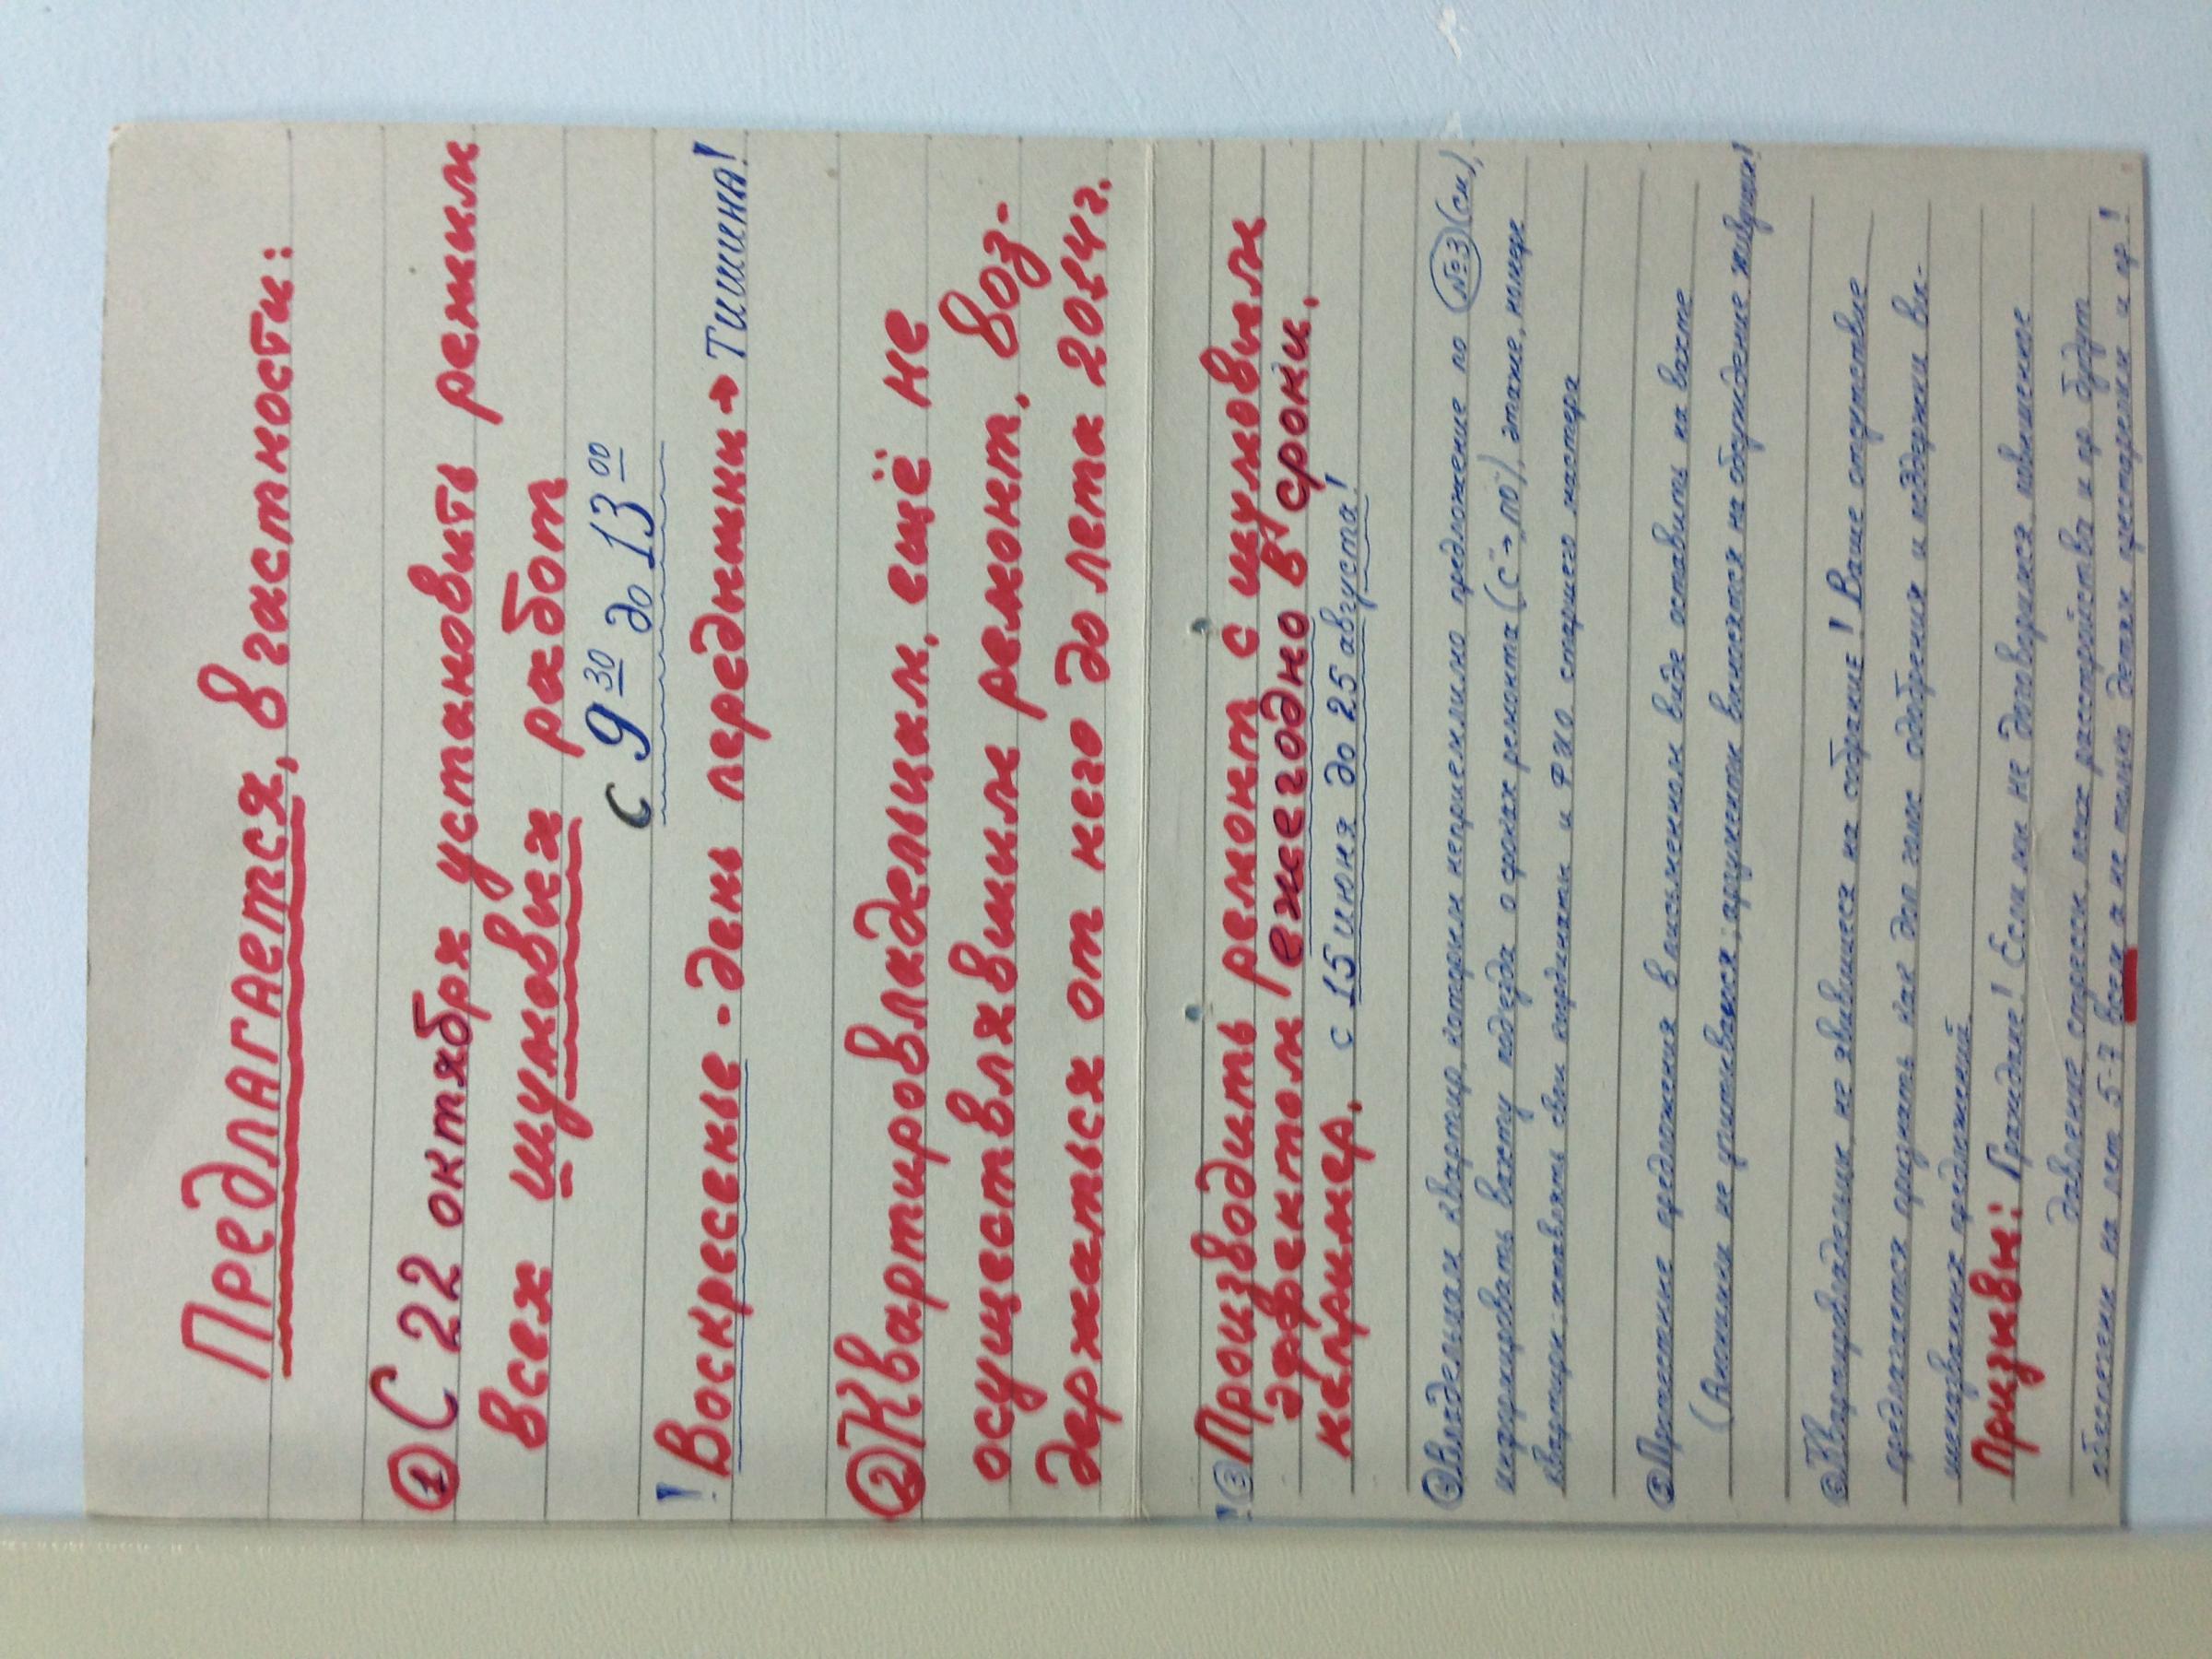 Предлагается, в частности:
① С 22 октября установить режим
всех шумовых работ
с 9 30 до 13 00
! Воскресенье - день передышки → Тишина!
② Квартировладельцам, ещё не
осуществлявшим ремонт, воз-
держаться от него до лета 2014г.
! ③ Производить ремонт с шумовым
эффектом ежегодно в сроки,
например, с 15 июня до 25 августа!
④ Владельцам квартир, которым неприемлимо предложение по №3 (см),
информировать вахту подъезда о сроках ремонта („с" → „по"), этаже, номере
квартиры; оставлять свои координаты и ФИО старшего мастера
⑤ Протестные предложения в письменном виде оставить на вахте
(Анонимки не учитываются; аргументы выносятся на обсуждение живущих!
⑥ Квартировладельцы, не явившиеся на собрание! Ваше отсутствие
предлагается признать как долг голос одобрения и поддержки вы-
шеназванных предложений.
Призывы: Граждане! Если мы не договоримся, повышенное
давление, стрессы, псих расстройства и др будут
обеспечены на лет 5-7 всем и не только детям, престарелым и др!